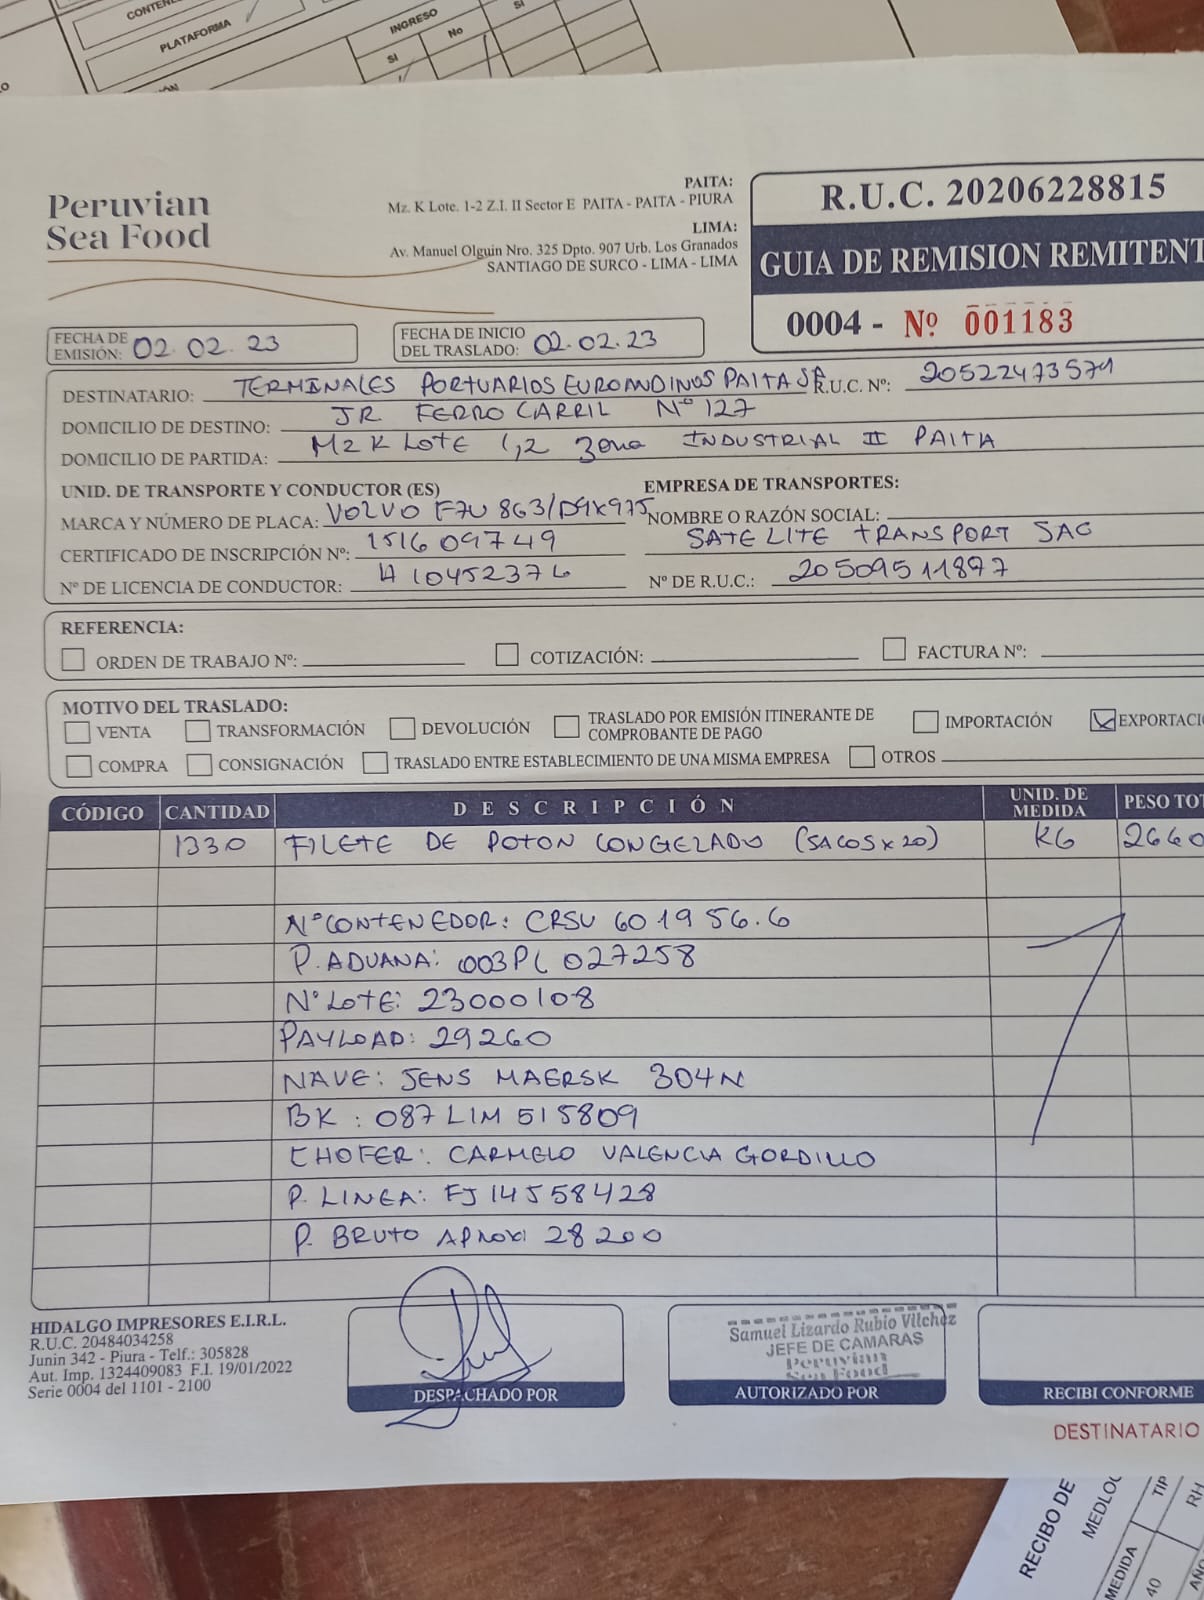 CONTEN
PLATAFORMA
INGRESO
SI
No
SI
Peruvian
Sea Food
PAITA:
Mz. K Lote. 1-2 Z.I. II Sector E PAITA - PAITA - PIURA
LIMA:
Av. Manuel Olguin Nro. 325 Dpto. 907 Urb. Los Granados
SANTIAGO DE SURCO - LIMA - LIMA
R.U.C. 20206228815
GUIA DE REMISION REMITENT
0004 - Nº 001183
FECHA DE EMISIÓN: 02.02.23
FECHA DE INICIO DEL TRASLADO: 02.02.23
DESTINATARIO: TERMINALES PORTUARIOS EUROANDINOS PAITA SA R.U.C. Nº: 20522473571
DOMICILIO DE DESTINO: JR FERROCARRIL Nº 127
DOMICILIO DE PARTIDA: MZ K LOTE 1,2 Zona INDUSTRIAL II PAITA
UNID. DE TRANSPORTE Y CONDUCTOR (ES)
EMPRESA DE TRANSPORTES:
MARCA Y NÚMERO DE PLACA: VOLVO F7U 863/D9X975
NOMBRE O RAZÓN SOCIAL:
CERTIFICADO DE INSCRIPCIÓN Nº: 151609749
SATELITE TRANSPORT SAC
Nº DE LICENCIA DE CONDUCTOR: H10452376
Nº DE R.U.C.: 20509511897
REFERENCIA:
ORDEN DE TRABAJO Nº:
COTIZACIÓN:
FACTURA Nº:
MOTIVO DEL TRASLADO:
VENTA TRANSFORMACIÓN DEVOLUCIÓN TRASLADO POR EMISIÓN ITINERANTE DE COMPROBANTE DE PAGO IMPORTACIÓN EXPORTACI
COMPRA CONSIGNACIÓN TRASLADO ENTRE ESTABLECIMIENTO DE UNA MISMA EMPRESA OTROS
CÓDIGO CANTIDAD DESCRIPCIÓN UNID. DE MEDIDA PESO TOT
1330 FILETE DE POTON CONGELADO (SACOS x 20) KG 2660
Nº CONTENEDOR: CRSU 601956.6
P. ADUANA: 003PL027258
Nº LOTE: 23000108
PAYLOAD: 29260
NAVE: JENS MAERSK 304N
BK: 087LIM515809
CHOFER: CARMELO VALENCIA GORDILLO
P. LINEA: FJ14558428
P. BRUTO APROX: 28200
HIDALGO IMPRESORES E.I.R.L.
R.U.C. 20484034258
Junin 342 - Piura - Telf.: 305828
Aut. Imp. 1324409083 F.I. 19/01/2022
Serie 0004 del 1101 - 2100
DESPACHADO POR
Samuel Lizardo Rubio Vilchez
JEFE DE CAMARAS
Peruvian
Sea Food
AUTORIZADO POR
RECIBI CONFORME
DESTINATARIO
RECIBO DE
MEDLOG
MEDIDA
TIP
40
RH
AÑO